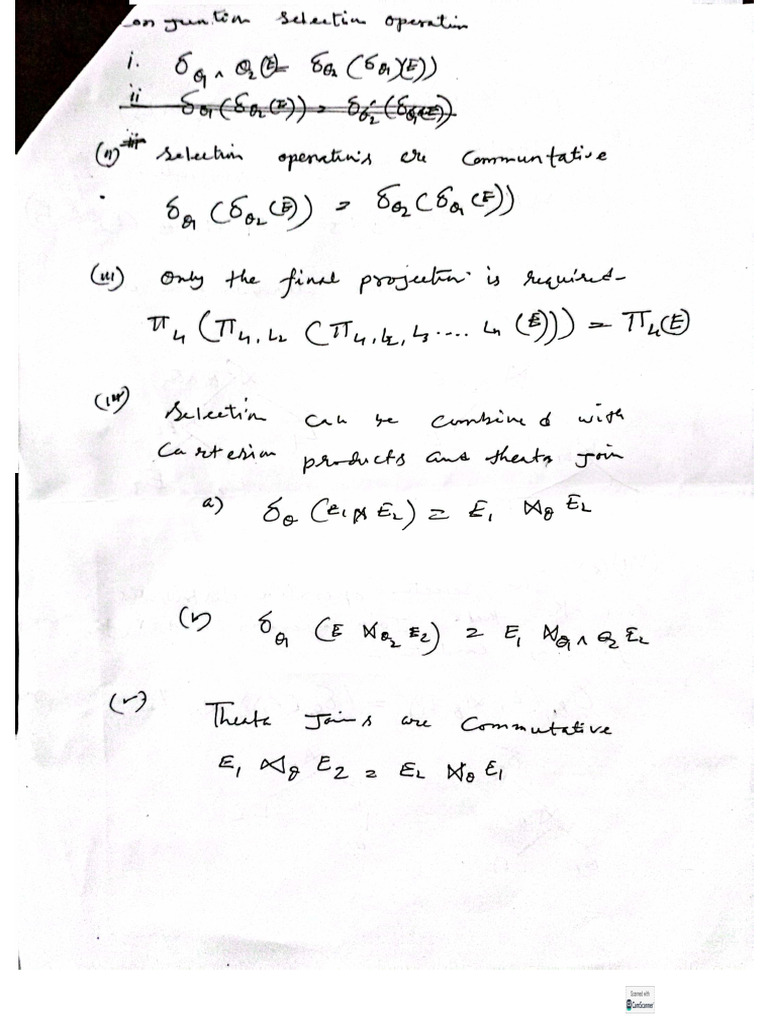 onjunction Selection operation
i. σθ1 ∧ θ2(E) = σθ2 (σθ1)(E))
ii σθ1(σθ2(E)) = σθ2(σθ1(E))
(ii) Selection operations are Communtative
σθ1 (σθ2(E)) = σθ2 (σθ1(E))
(iii) Only the final projection is required
πL1 (πL1, L2 (πL1, L2, L3.... Ln (E))) = πL1(E)
(iv) Selection can be combined with
Cartesian products and theta join
a) σθ (E1 ⋈ E2) = E1 ⋈θ E2
(b) σθ1 (E ⋈θ2 E2) = E1 ⋈θ1 ∧ θ2 E2
(v) Theta Joins are Commutative
E1 ⋈θ E2 = E2 ⋈θ E1
Scanned with
CamScanner